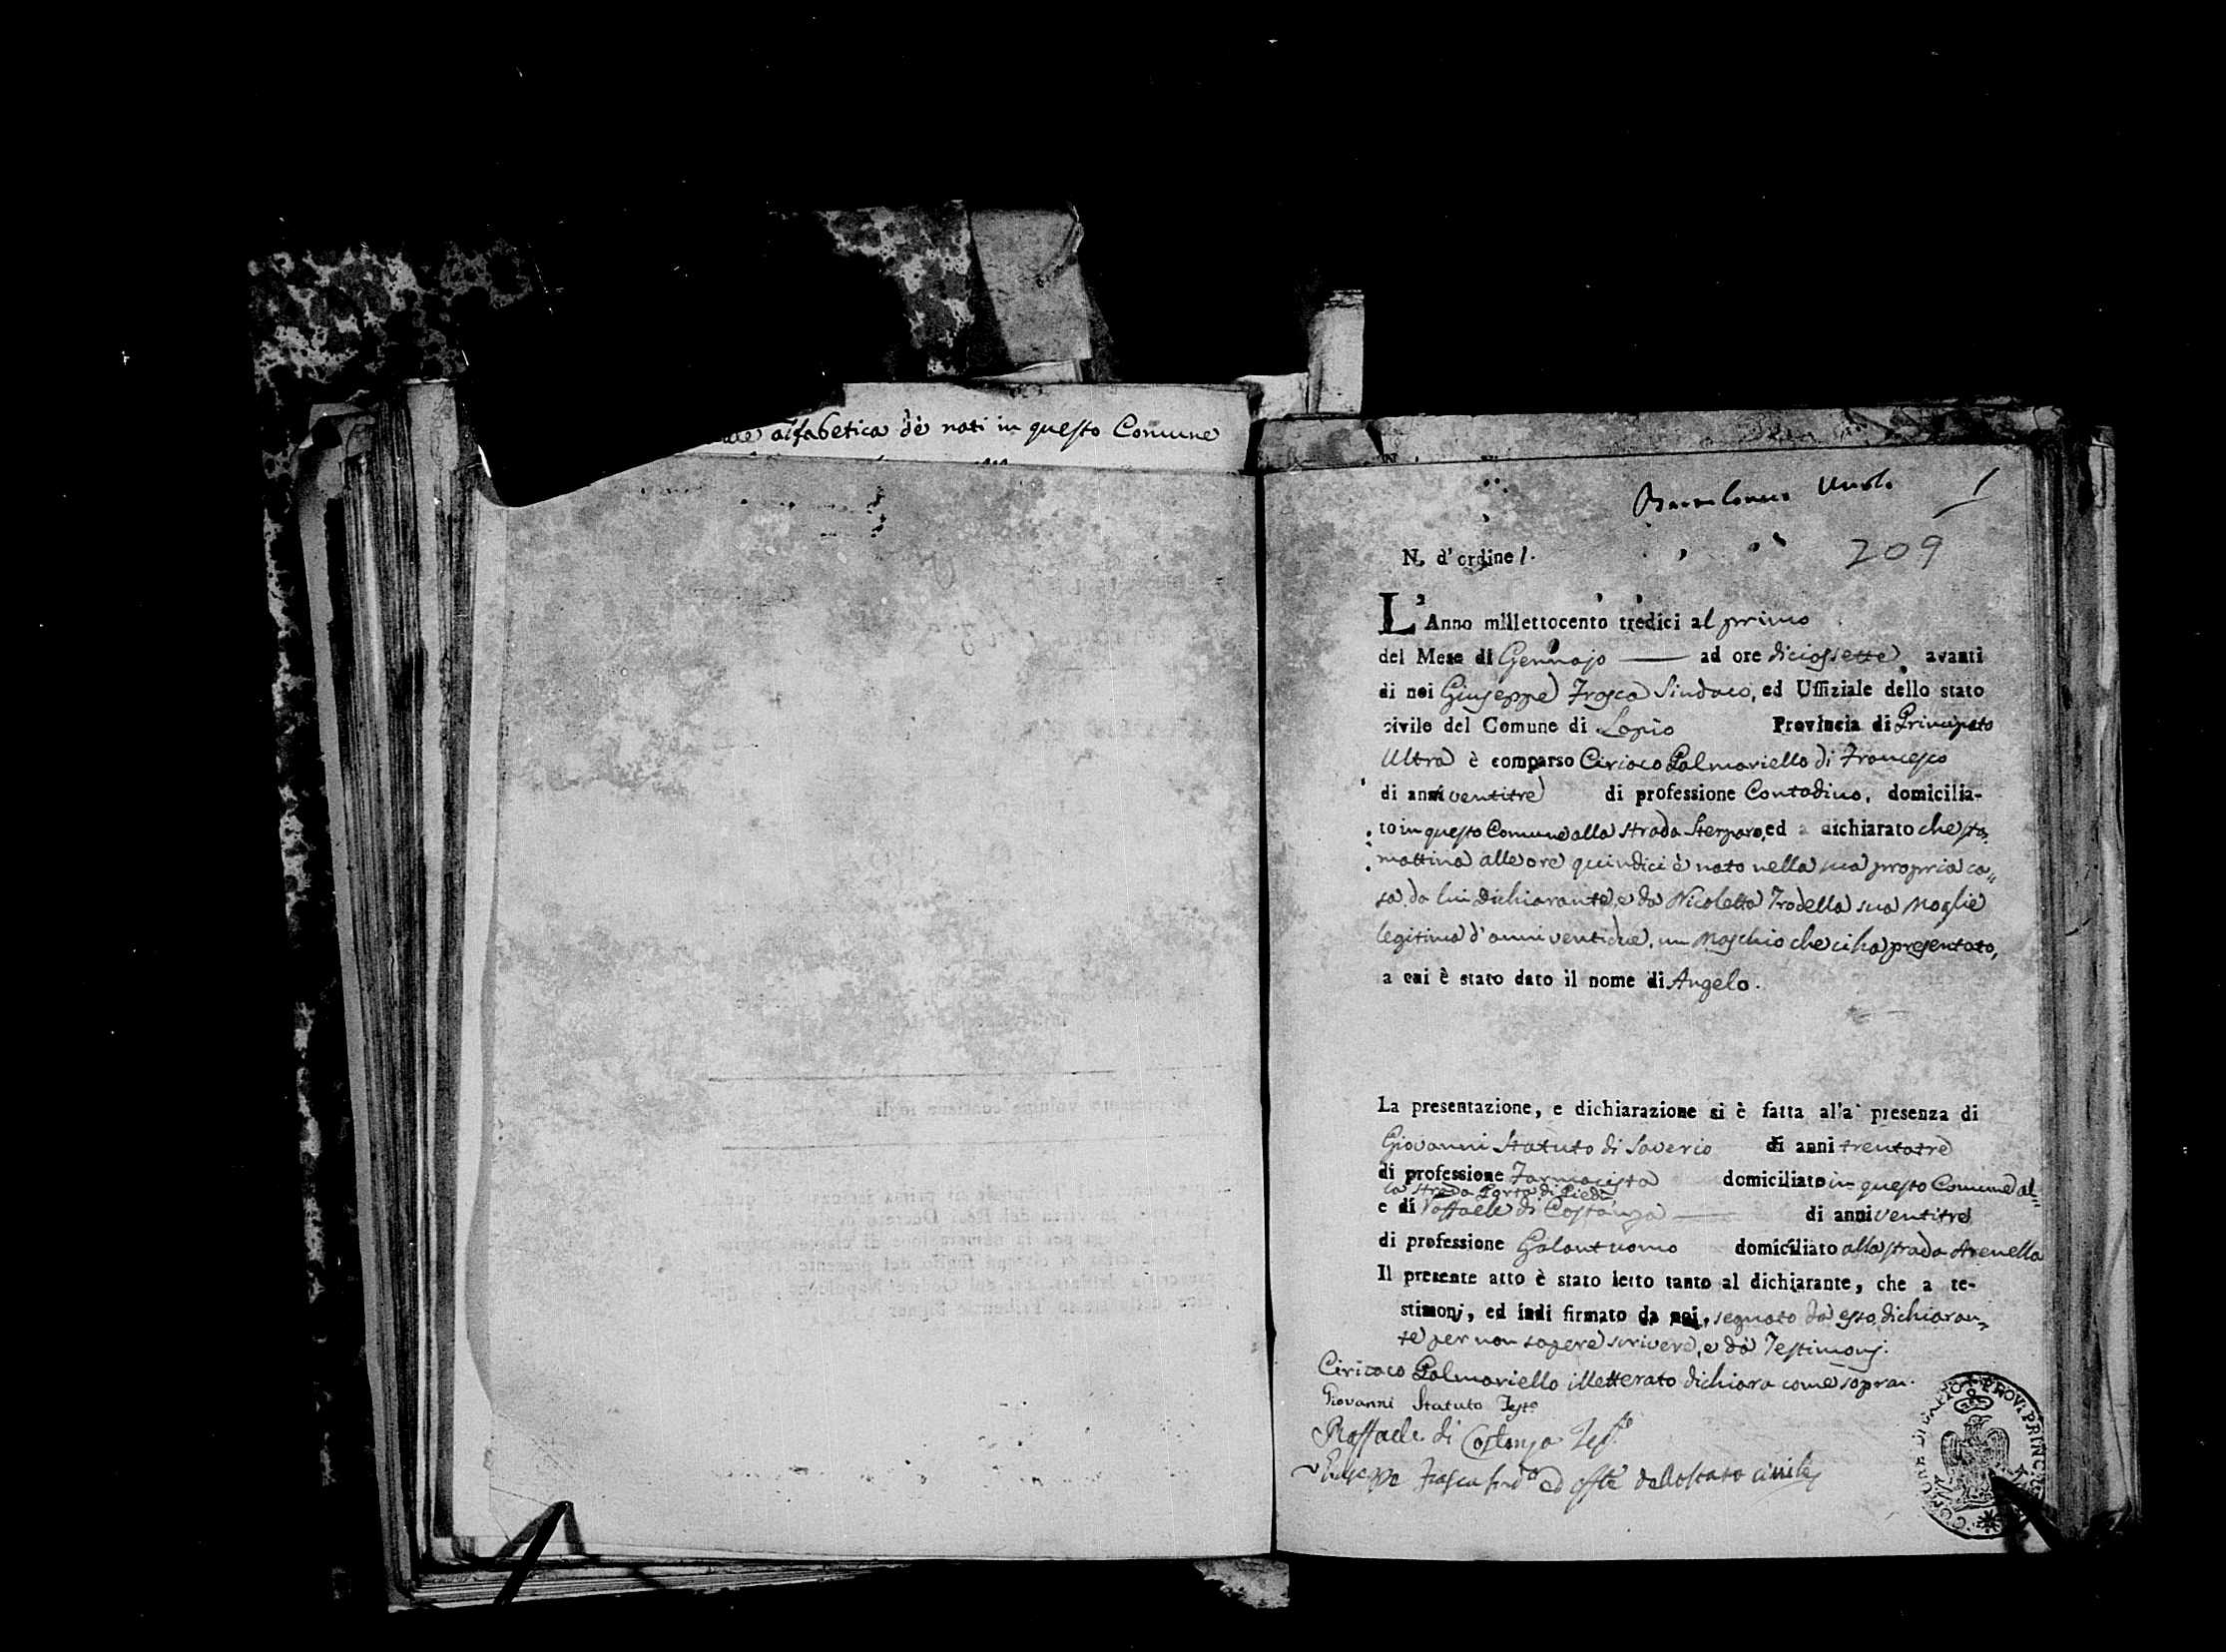 alfabetica dè nati in questo Comune
1
209
N. d'ordine 1.
L'Anno millettocento tredici al primo
del Mese di Gennajo ad ore diciossette avanti
di noi Giuseppe Frosca Sindaco, ed Uffiziale dello stato
civile del Comune di Lapio Provincia di Principato
Ultra è comparso Ciriaco Palmariello di Francesco
di anni ventitre di professione Contadino, domicilia-
to in questo Comune alla strada Sterparo, ed a dichiarato che sta
mattina alle ore quindici è nato nella sua propria ca„
sa da lui dichiarante, e da Nicoletta Trodella sua Moglie
legitima d'anni ventidue, un Maschio che ci ha presentato,
a cui è stato dato il nome di Angelo.
La presentazione, e dichiarazione si è fatta alla presenza di
Giovanni Statuto di Saverio di anni trentatre
di professione Farmacista domiciliato in questo Comune al„
la strada Porta di Piedi
e di Raffaele di Costanza di anni ventitre
di professione Galantuomo domiciliato alla strada Arenella
Il presente atto è stato letto tanto al dichiarante, che a te-
stimonj, ed indi firmato da noi, segnato da esso dichiaran„
te per non sapere scrivere, e da Testimonj.
Ciriaco Palmariello illetterato dichiara come sopra.
Giovanni Statuto Testo
Raffaele di Costanza Teste
Giuseppe Frosca Sindo ed offle dello stato civile